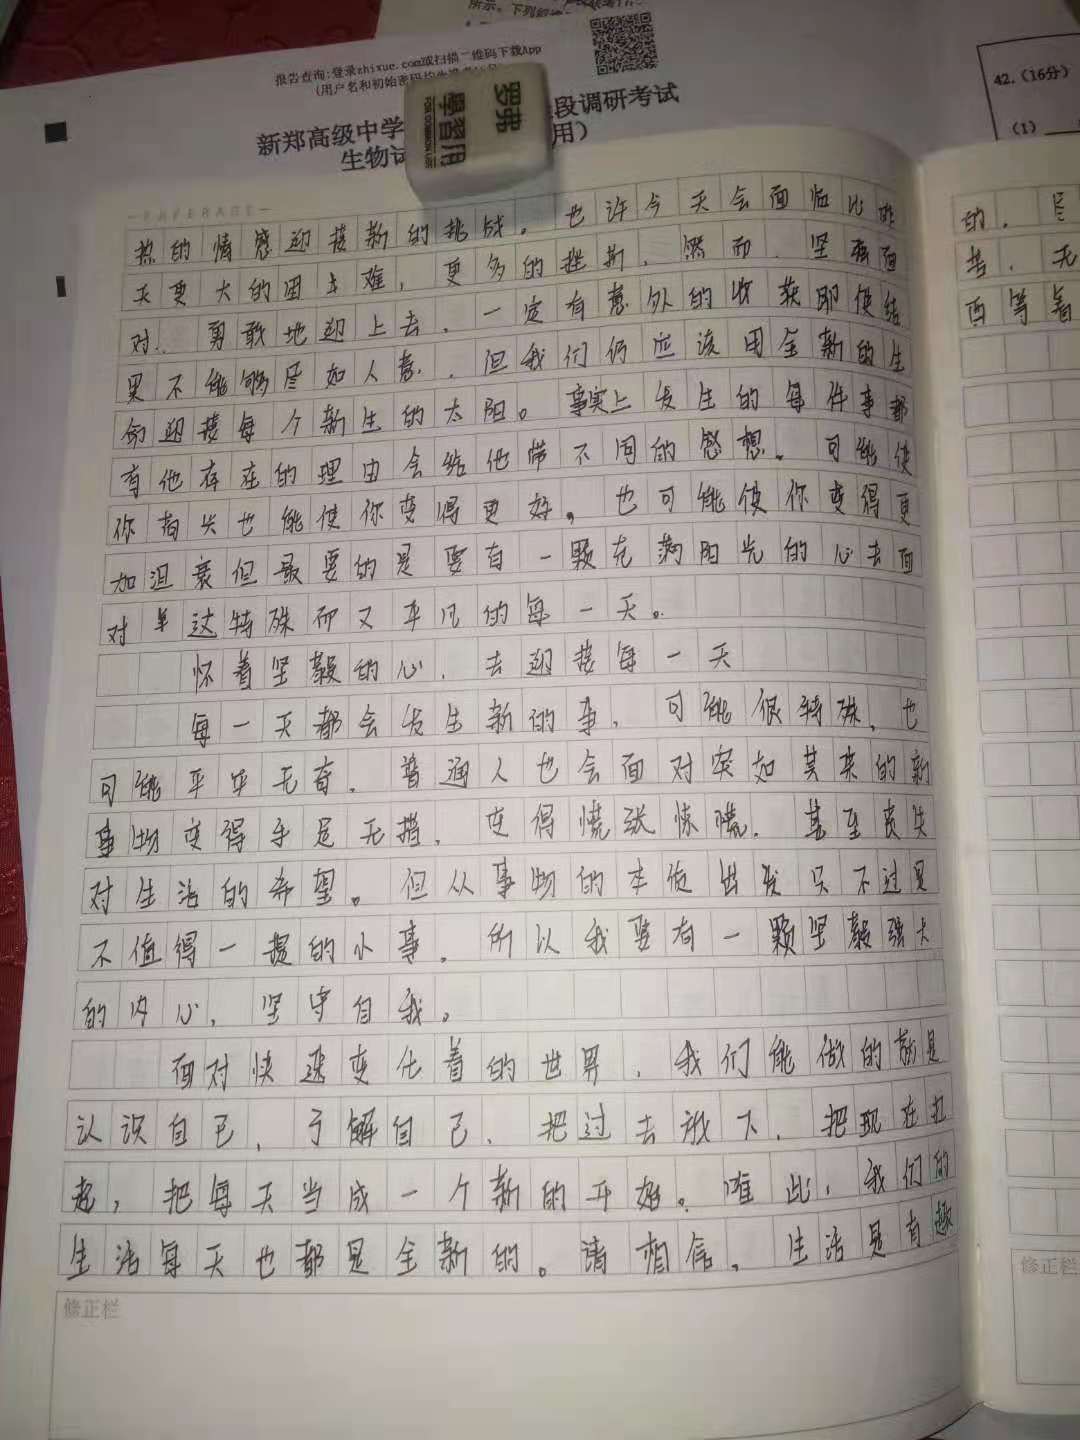 所示。下列
报告查询:登录zhixue.com或扫描二维码下载App
(用户名和初始密码均
新郑高级中学
段调研考试
生物试
用)
42.(16分)
(1)
罗弗
學習用
FOR COMMON USE
热的情感迎接新的挑战。也许今天会面临比昨
天更大的困与难，更多的挫折，然而，坚强面
对，勇敢地迎上去，一定有意外的收获即使结
果不能够尽如人意，但我们仍应该用全新的生
命迎接每个新生的太阳。事实上发生的每件事都
有他存在的理由会给他带不同的感想。可能使
你有失也能使你变得更好，也可能使你变得更
加沮衰但最要的是要有一颗充满阳光的心去面
对单过特殊而又平凡的每一天。
怀着坚毅的心，去迎接每一天
每一天都会发生新的事，可能很特殊，也
可能平平无奇，普通人也会面对突如其来的新
事物变得手足无措，变得慌张惊慌，甚至丧失
对生活的希望。但从事物的本质出发只不过是
不值得一提的小事，所以我要有一颗坚毅强大
的内心，坚守自我。
面对快速变化着的世界，我们能做的就是
认识自己，了解自己，把过去放下，把现在扛
起，把每天当成一个新的开始。唯此，我们的
生活每天也都是全新的。请相信，生活是有趣
修正栏
的，尽
苦，无
西等着
修正栏